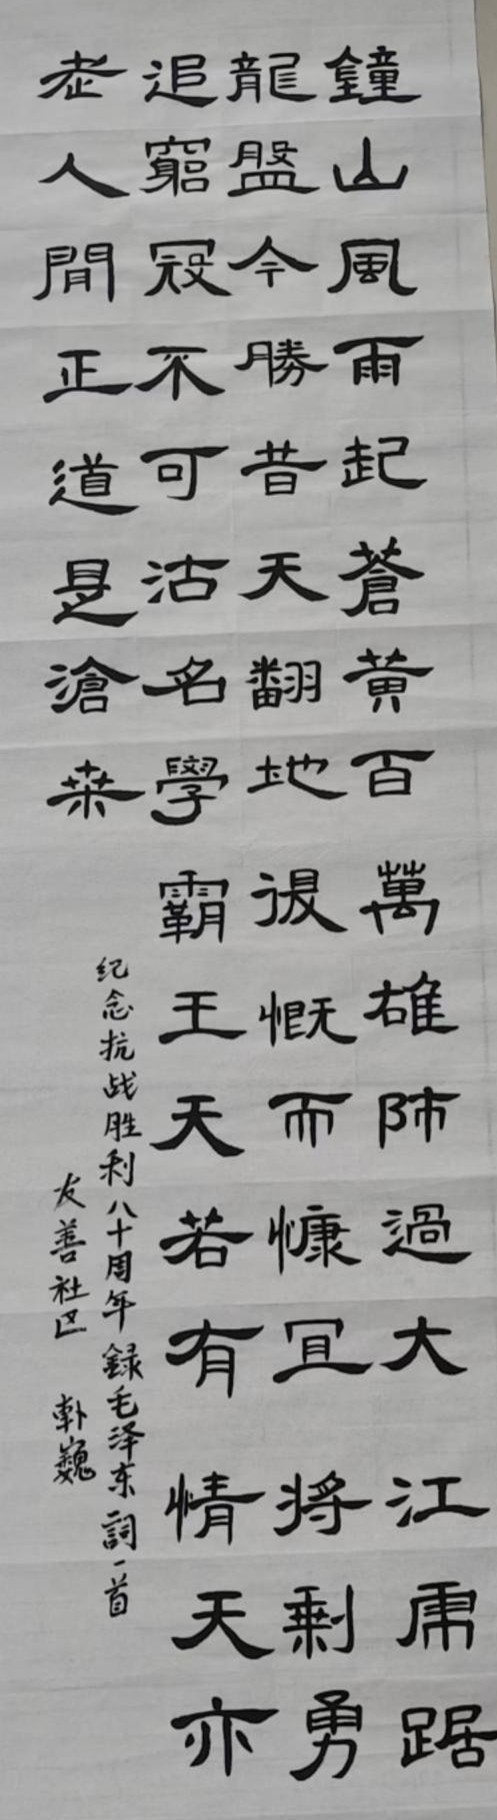 鐘山風雨起蒼黄百萬雄師過大江虎踞
龍盤今勝昔天翻地復慨而慷宜将剩勇
追窮寇不可沽名學霸王天若有情天亦
老人間正道是滄桑
纪念抗战胜利八十周年録毛泽东詞一首
友善社区 韩巍